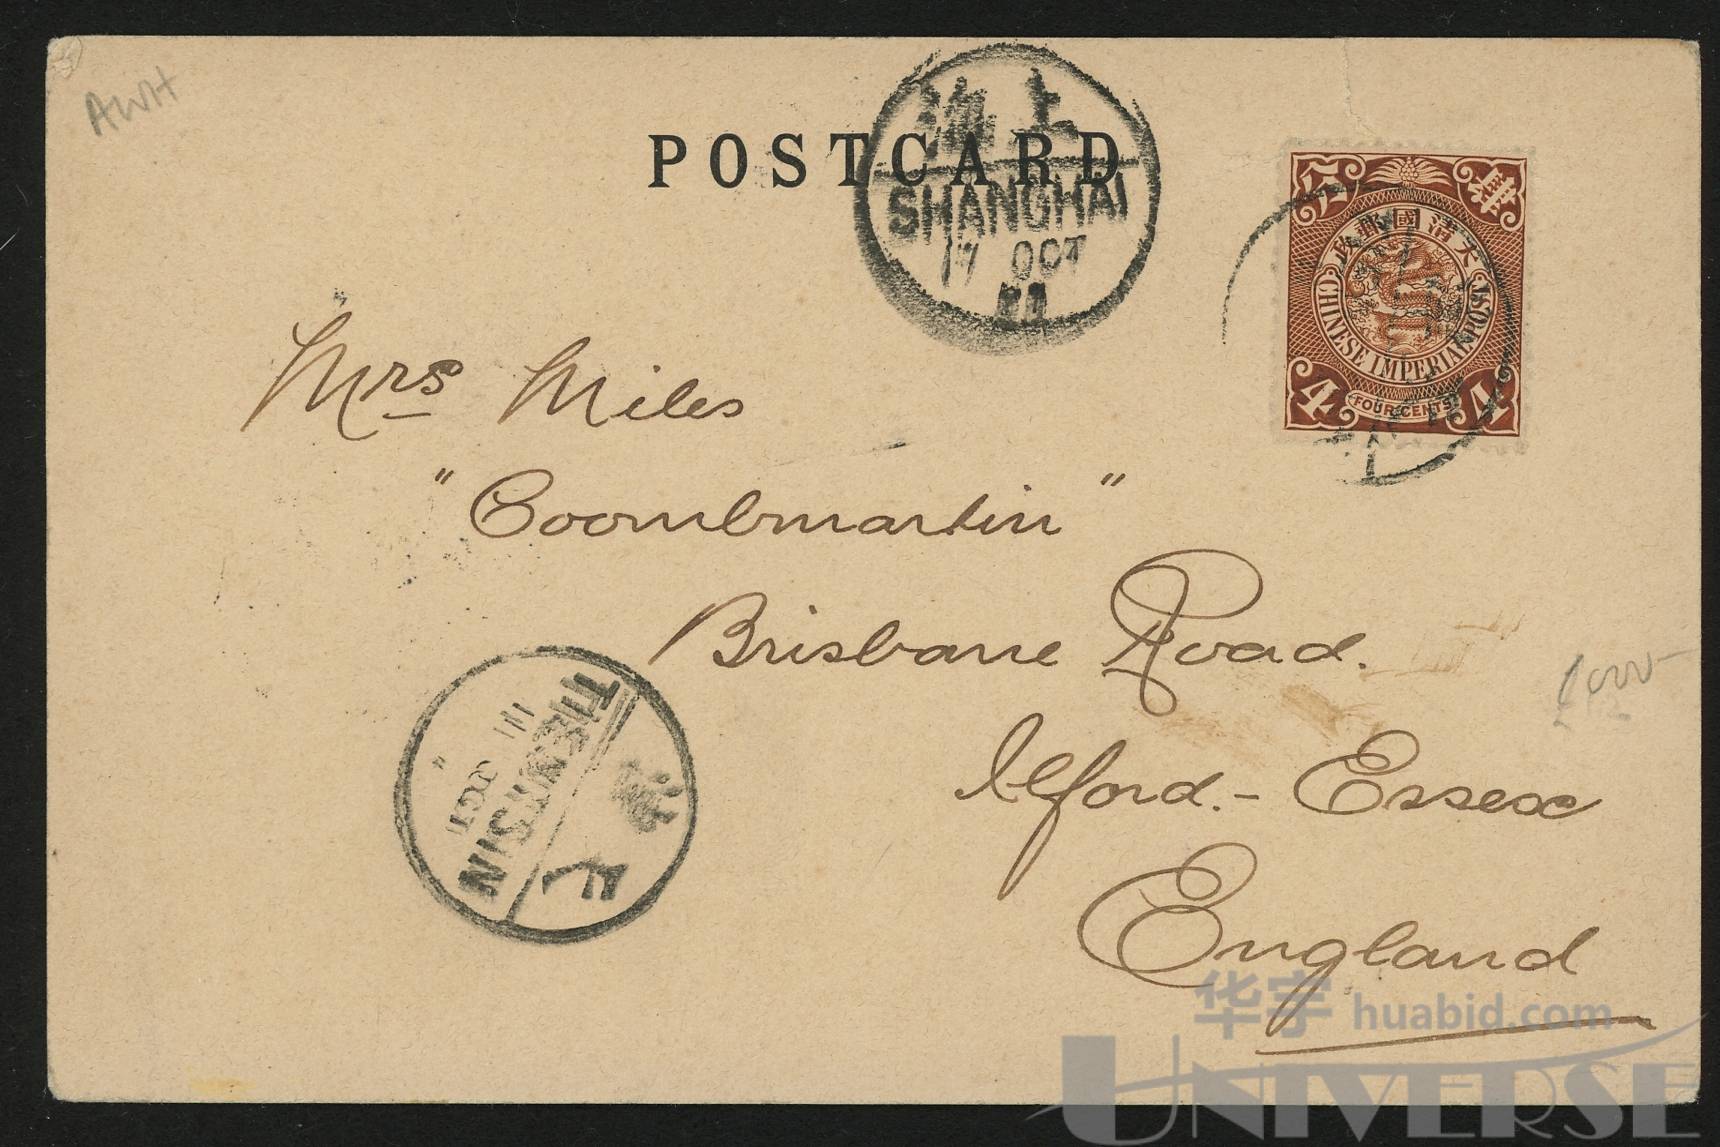 AWH
POSTCARD
上海
SHANGHAI
17 OCT
大清國郵政
CHINESE IMPERIAL POST
4 FOUR CENTS 4
Mrs Miles
"Coombmartin"
Brisbane Road.
Ilford. - Essex
England
TIENTSIN
11 OCT
華宇 huabid.com
UNIVERSE